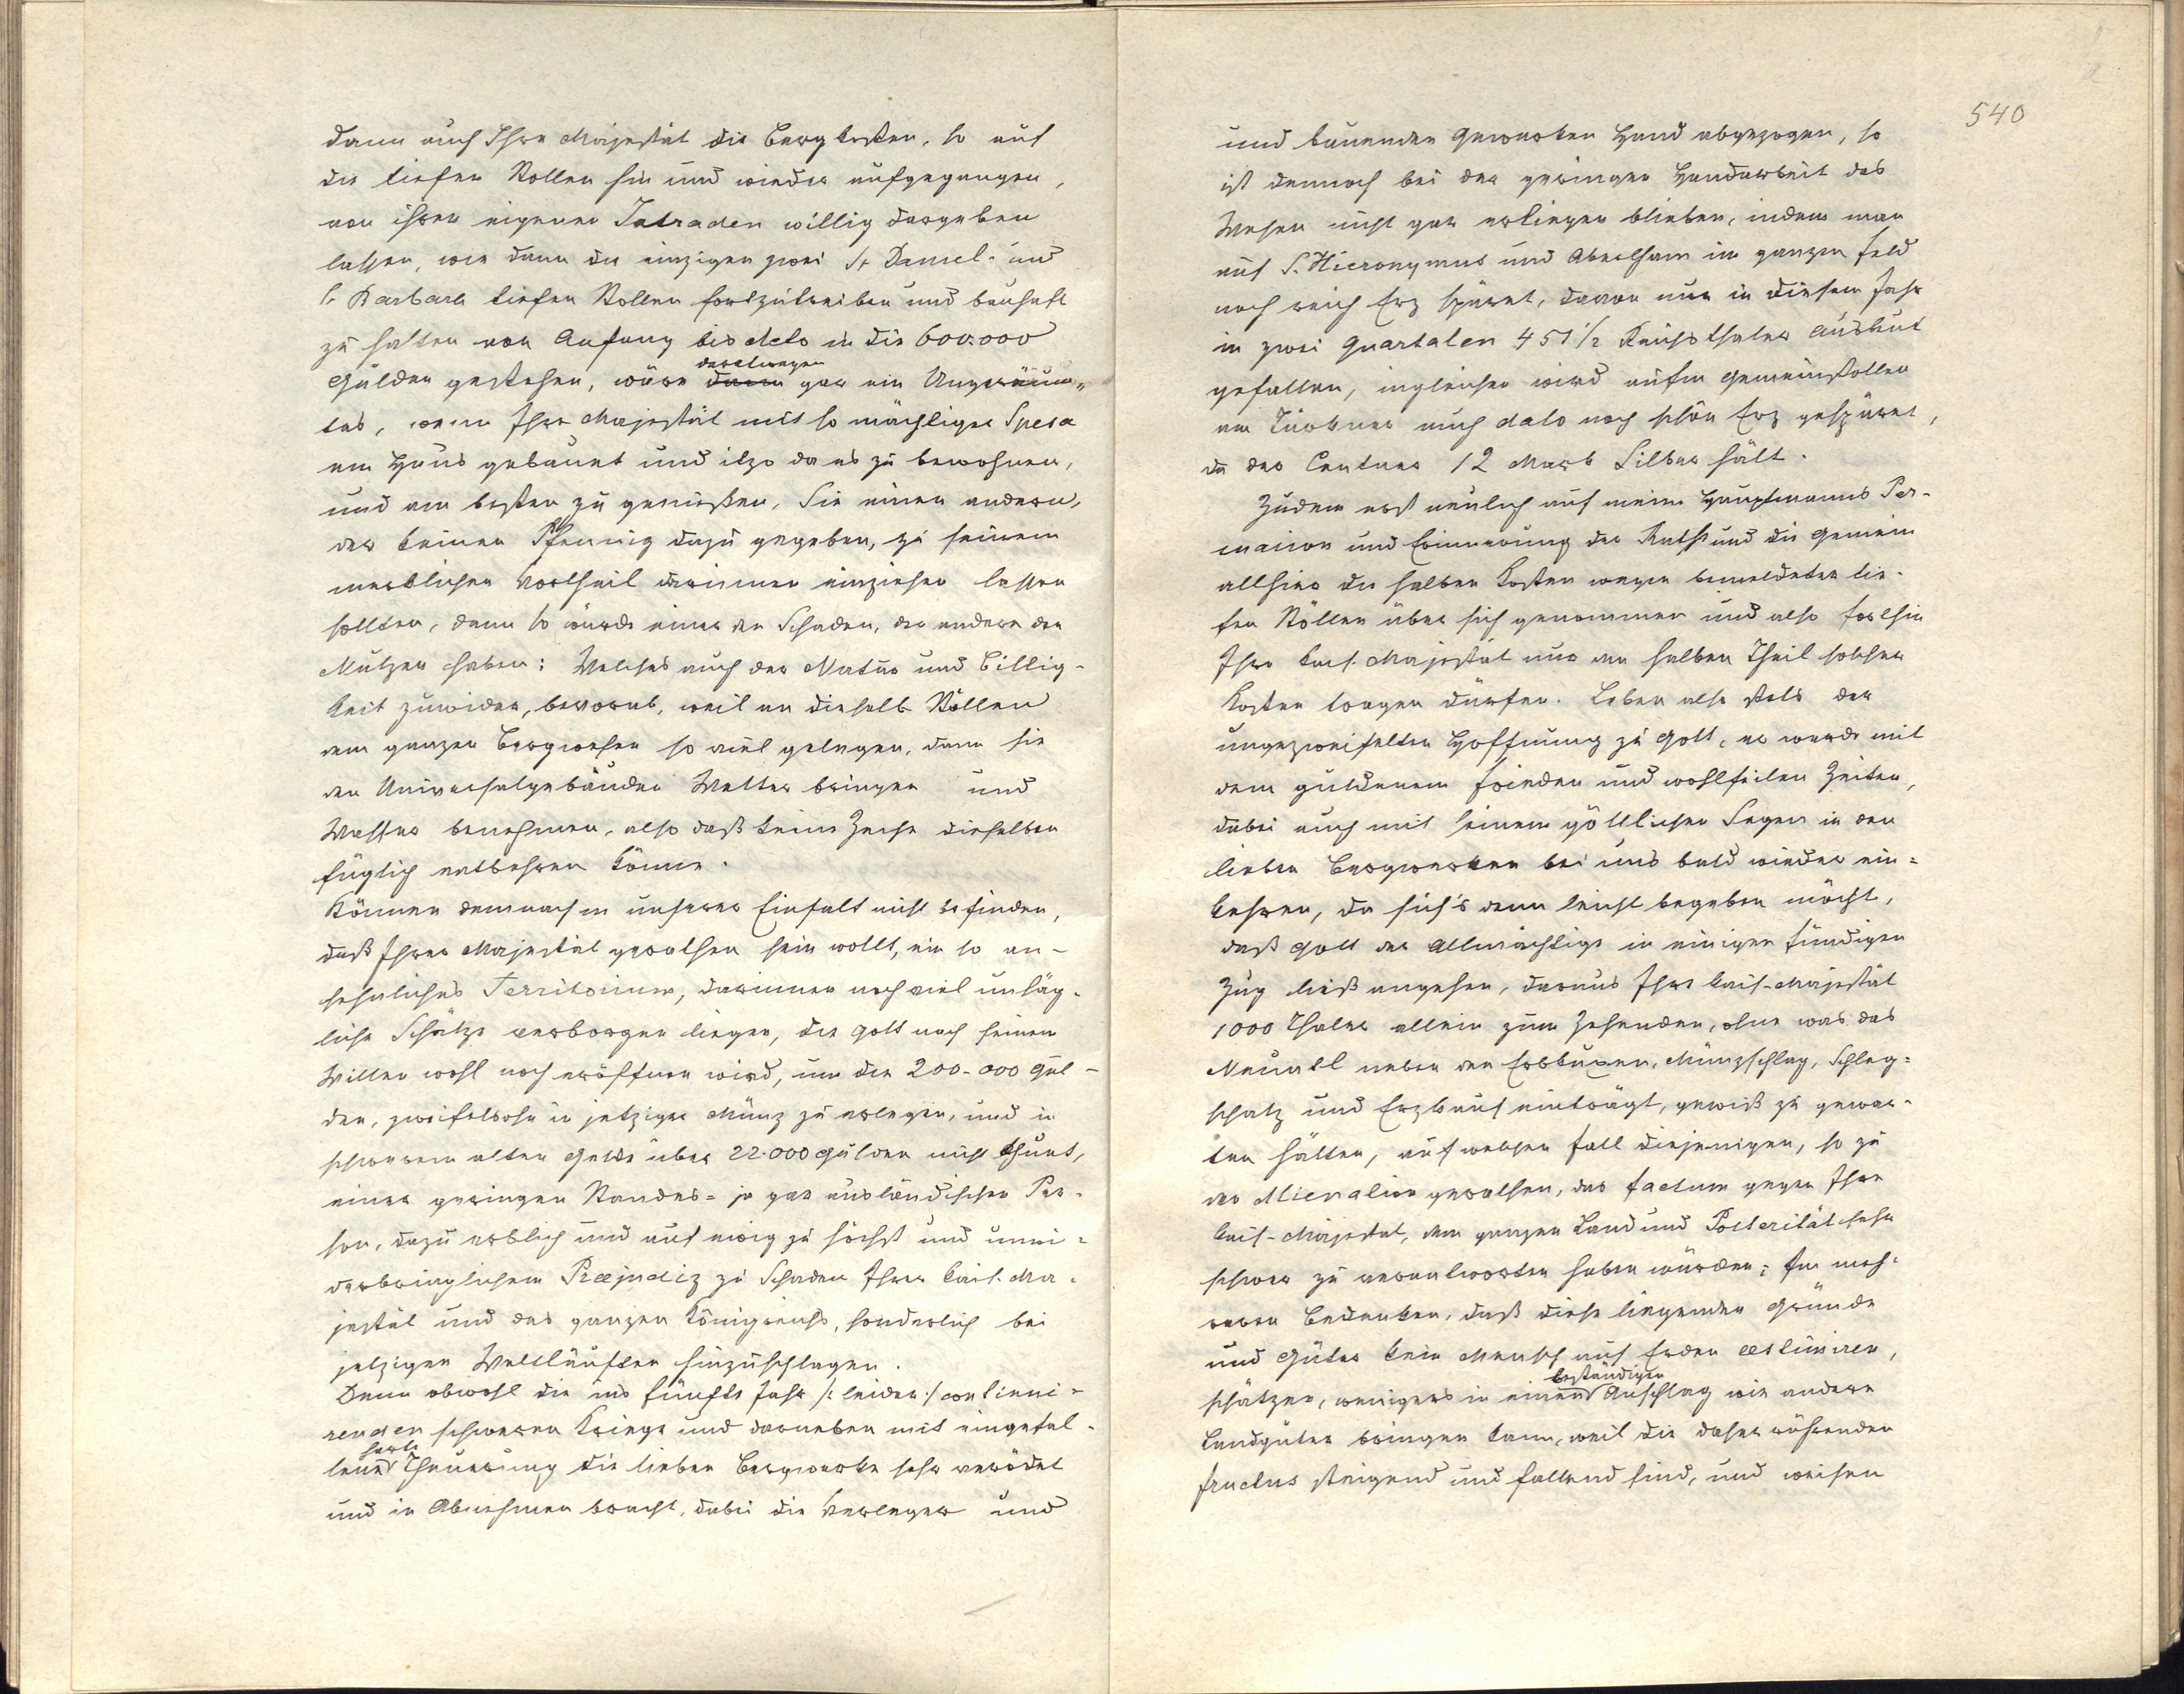 dann auch Ihre Majestät die Bergkosten, so auf
die tiefen Stollen hin und wieder aufgegangen,
von ihren eigenen Intraden willig dargeben
lassen, wie dann die einzigen zwei St Daniel- und
S. Barbara tiefen Stollen fortzutreiben und bauhaft
zu halten von Anfang bis dato in die 600.000
derentwegen
Gulden gestehen, wäre dann gar ein Ungereum-
tes, wenn Ihre Majestät mit so mächtiger Spesa
ein Haus gebauet und itzo da es zu bewohnen,
und am besten zu genießen, Sie einen andern,
der keinen Pfennig dazu gegeben, zu seinem
merklichen Vortheil darinnen einziehen lassen
sollten, dann so würde einer den Schaden, der andere den
Nutzen haben: Welches auch der Natur und Billig-
keit zuwider, bevorab, weil an dieselb Stöllen
dem ganzen Bergwesen so viel gelegen, dann sie
den Universalgebäuden Wetter bringen und
Wasser benehmen, also daß keine Zeche dieselben
füglich entbehren könne.
Können demnach in unserer Einfalt nicht befinden,
daß Ihrer Majestät gerathen sein wollt, ein so an-
sehnliches Territorium, darinnen noch viel unsäg-
liche Schätze verborgen liegen, die Gott nach seinem
Willen wohl noch eröffnen wird, um die 200.000 Gul-
den, zweifelsohn in jetziger Münz zu erlegen, und in
schwerem alten Gelde über 22.000 Gulden nicht thuet,
einer geringen Standes- ja gar ausländischen Per-
son, dazu erblich und auf ewig zu höchst und unwi-
derbringlichem Præjudiz zu Schaden Ihrer kais. Ma-
jestät und des ganzen Königreichs, sonderlich bei
jetzigen Weltläuften hinzuschlagen.
Denn obwohl die ins fünfte Jahr /: leider :/ continui-
renden schweren Kriege und darneben mit eingefal-
harte
lene Theuerung die lieben Bergwerke sehr verödet
und in Abnehmen bracht, dabei die Verleger und
540
und bauenden Gewerken Hand abgezogen, so
ist dennoch bei der geringen Handarbeit das
Wesen nicht gar erliegen blieben, indem man
auf S. Hieronymus und Abrelham im ganzen Feld
noch reich Erz spüret, davon nur in diesem Jahr
in zwei Quartalen 451 1/2 Reichsthaler Ausbeut
gefallen, ingleichen wird aufm Gemeinstollen
am Türkner auch dato noch schön Erz gespüret,
da der Centner 12 Mark Silber hält.
Zudem erst neulich auf meine Hauptmanns Per-
maison und Erinnerung der Rath und die Gemein
allhier die halben Kosten wegen bemeldeter tie-
fen Stöllen über sich genommen und also forthin
Ihre kais. Majestät nur den halben Theil solcher
Kosten tragen dürfen. Leben also stets der
ungezweifelten Hoffnung zu Gott, er werde mit
dem guldenem Frieden und wohlfeilen Zeiten,
dabei auch mit seinem göttlichen Segen in den
lieben Bergwerken bei uns bald wieder ein-
kehren, da sich's denn leicht begeben möcht,
daß Gott der Allmächtige in einigen fündigen
Zug ließ angehen, daraus Ihre kais-Majestät
1000 Thaler allein zum Zehenden, ohne was das
Neuntl neben den Erbkuxen, Münzschlag, Schlag-
schatz und Erzkauf einträgt, gewiß zu gewar-
ten hätten, auf welchen Fall diejenigen, so zu
der Alienation gerathen, das factum gegen Ihre
kais-Majestät, dem ganzen Land und Posterität sehr
schwer zu verantworten haben würden; In meh-
rerm Bedenken, daß diese liegenden Gründe
und Güter kein Mensch auf Erden æstimiren,
beständigen
schätzen, wenigers in einen Anschlag wie andere
Landgüter bringen kann, weil die daher rührenden
fructus steigend und fallend sind, und weisen